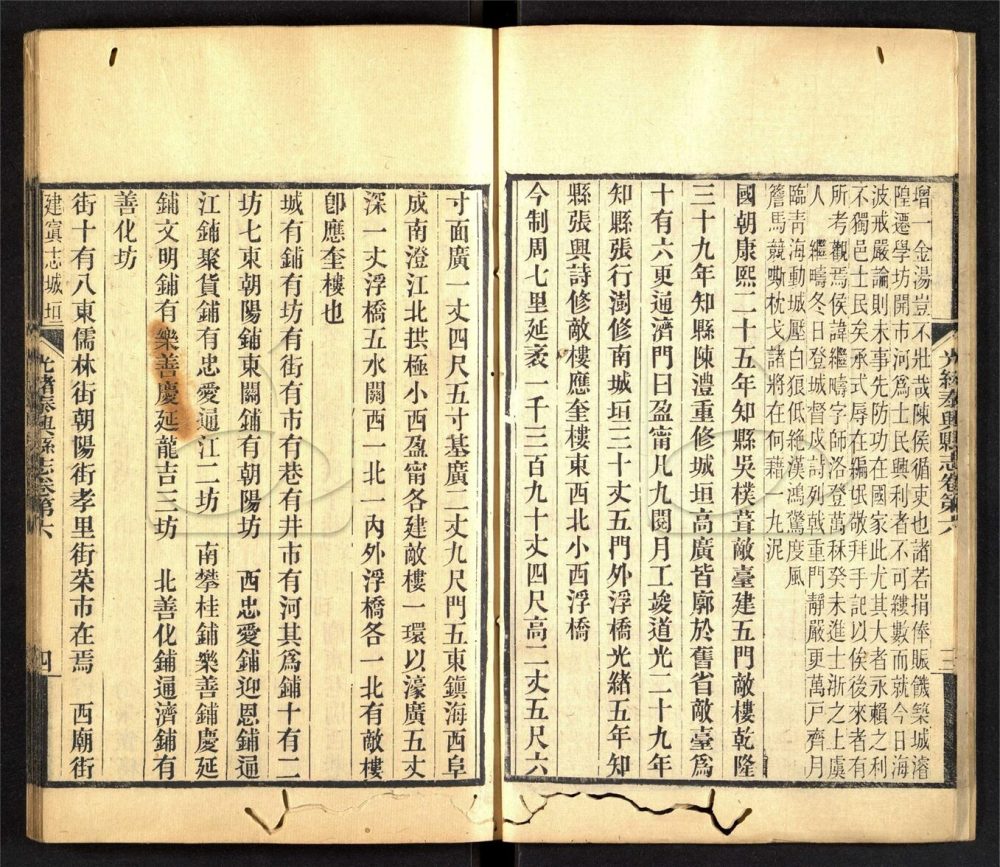 增一金湯豈不壯哉陳侯循吏也諸若捐俸賑饑築城濬
隍遷學坊開市河爲士民興利者不可縷數而就今日海
波戒嚴論則未事先防功在國家此尤其大者永賴之利
不獨邑士民矣承式辱在編氓敬拜手記以俟後來者有
所考觀焉侯諱繼疇字師洛登萬秝癸未進士浙之上虞
人 繼疇冬日登城督戍詩列戟重門靜嚴更萬戸齊月
臨青海動城壓白狼低絶漢鴻驚度風
簷馬競嘶枕戈諸將在何藉一丸泥
國朝康熙二十五年知縣吳樸葺敵臺建五門敵樓乾隆
三十九年知縣陳澧重修城垣高廣皆廓於舊省敵臺爲
十有六更通濟門曰盈甯凡九閱月工竣道光二十九年
知縣張行澍修南城垣三十丈五門外浮橋光緒五年知
縣張興詩修敵樓應奎樓東西北小西浮橋
今制周七里延袤一千三百九十丈四尺高二丈五尺六
光緒泰興縣志卷第六
三
寸面廣一丈四尺五寸基廣二丈九尺門五東鎮海西阜
成南澄江北拱極小西盈甯各建敵樓一環以濠廣五丈
深一丈浮橋五水關西一北一內外浮橋各一北有敵樓
卽應奎樓也
城有鋪有坊有街有市有巷有井市有河其爲鋪十有二
坊七東朝陽鋪東關鋪有朝陽坊 西忠愛鋪迎恩鋪通
江鋪聚貨鋪有忠愛通江二坊 南攀桂鋪樂善鋪慶延
鋪文明鋪有樂善慶延龍吉三坊 北善化鋪通濟鋪有
善化坊
街十有八東儒林街朝陽街孝里街菜市在焉 西廟街
建寘志城垣
光緒泰興縣志卷第六
四